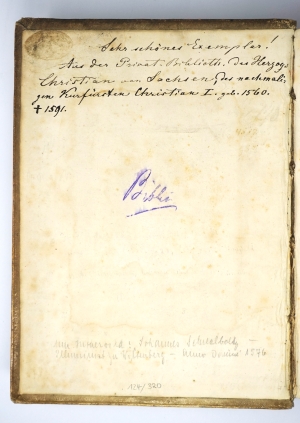 Sehr schönes Exemplar!
Aus der Privat-Biblioth. des Herzogs
Christian von Sachsen, des nachmali-
gen Kurfürsten Christian I. geb. 1560.
† 1591.
Bibli
Johannes
Wittenberg – Anno Domini 1576